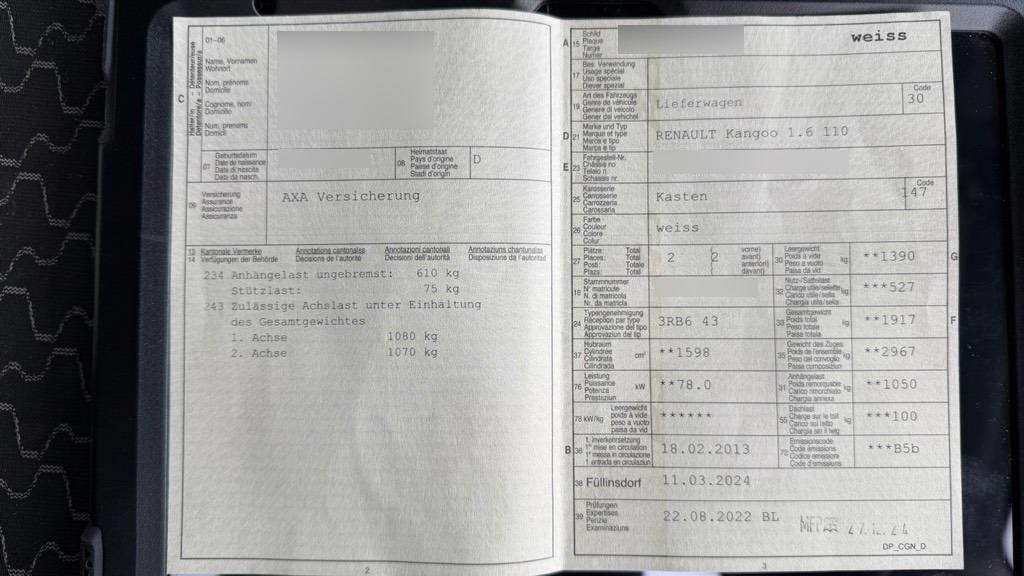 01-06
Name, Vornamen
Wohnort
Nom, prénoms
Domicile
Cognome, nomi
Domicilio
Num, prenums
Domicil
C
07
Geburtsdatum
Date de naissance
Data di nascita
Data da nasch.
08
Heimatstaat
Pays d'origine
Paese d'origine
Stadi d'origin
D
09
Versicherung
Assurance
Assicurazione
Assicuranza
AXA Versicherung
13 Kantonale Vermerke Annotations cantonales Annotazioni cantonali Annotaziuns chantunalas
14 Verfügungen der Behörde Décisions de l'autorité Decisioni dell'autorità Disposiziuns da l'autoritad
234 Anhängelast ungebremst: 610 kg
Stützlast: 75 kg
243 Zulässige Achslast unter Einhaltung
des Gesamtgewichtes
1. Achse 1080 kg
2. Achse 1070 kg
2
A 15
Schild
Plaque
Targa
Numer
weiss
17
Bes. Verwendung
Usage spécial
Uso speciale
Diever spezial
19
Art des Fahrzeugs
Genre de véhicule
Genere di veicolo
Gener dal vehichel
Lieferwagen
Code
30
D 21
Marke und Typ
Marque et type
Marca e tipo
Marca e tip
RENAULT Kangoo 1.6 110
E 23
Fahrgestell-Nr.
Châssis no
Telaio n.
Schassis nr.
25
Karosserie
Carrosserie
Carrozzeria
Carossaria
Kasten
Code
147
26
Farbe
Couleur
Colore
Colur
weiss
27
Plätze: Total
Places: Total
Posti: Totale
Plazs: Total
2 ( 2
vorne)
avant)
anteriori)
davant)
30
Leergewicht
Poids à vide
Peso a vuoto
Paisa da vid
kg
**1390
G
18
Stammnummer
N° matricule
N. di matricola
Nr. da matricla
32
Nutz-/Sattellast
Charge utile/sellette
Carico utile/sella
Chargia utila/sella
kg
***527
24
Typengenehmigung
Réception par type
Approvazione del tipo
Approvaziun dal tip
3RB6 43
33
Gesamtgewicht
Poids total
Peso totale
Paisa totala
kg
**1917
F
37
Hubraum
Cylindrée
Cilindrata
Cilindrada
cm³
**1598
35
Gewicht des Zuges
Poids de l'ensemble
Peso del convoglio
Paisa cumposiziun
kg
**2967
76
Leistung
Puissance
Potenza
Prestaziun
kW
**78.0
31
Anhängelast
Poids remorquable
Carico rimorchiato
Chargia annexa
kg
**1050
78 kW/kg
Leergewicht
poids à vide
peso a vuoto
paisa da vid
******
55
Dachlast
Charge sur le toit
Carico sul tetto
Chargia sin il tetg
kg
***100
B 36
1. Inverkehrsetzung
1re mise en circulation
1a messa in circolazione
1 entrada en circulaziun
18.02.2013
72
Emissionscode
Code émissions
Codice emissioni
Code d'emissiuns
***B5b
38 Füllinsdorf 11.03.2024
39
Prüfungen
Expertises
Perizie
Examinaziuns
22.08.2022 BL
DP_CGN_D
3